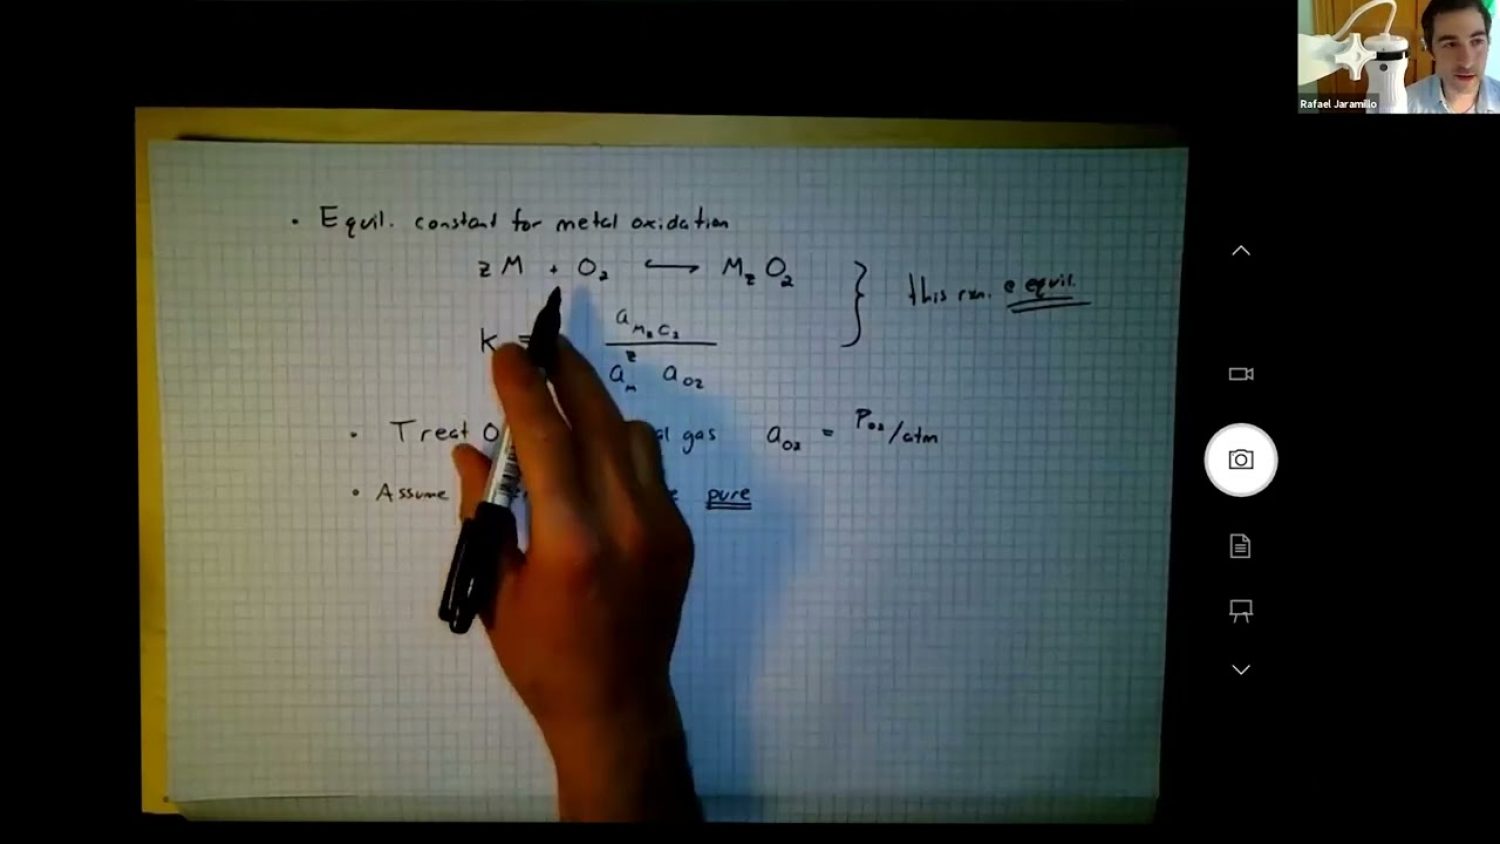 Rafael Jaramillo
• Equil. constant for metal oxidation
z M + O₂ ⟷ M_z O₂ } this rxn. @ equil.
K = a_{M_z O₂} / a_M^z a_{O₂}
• Treat O gas a_{O₂} = P_{O₂}/atm
• Assume pure